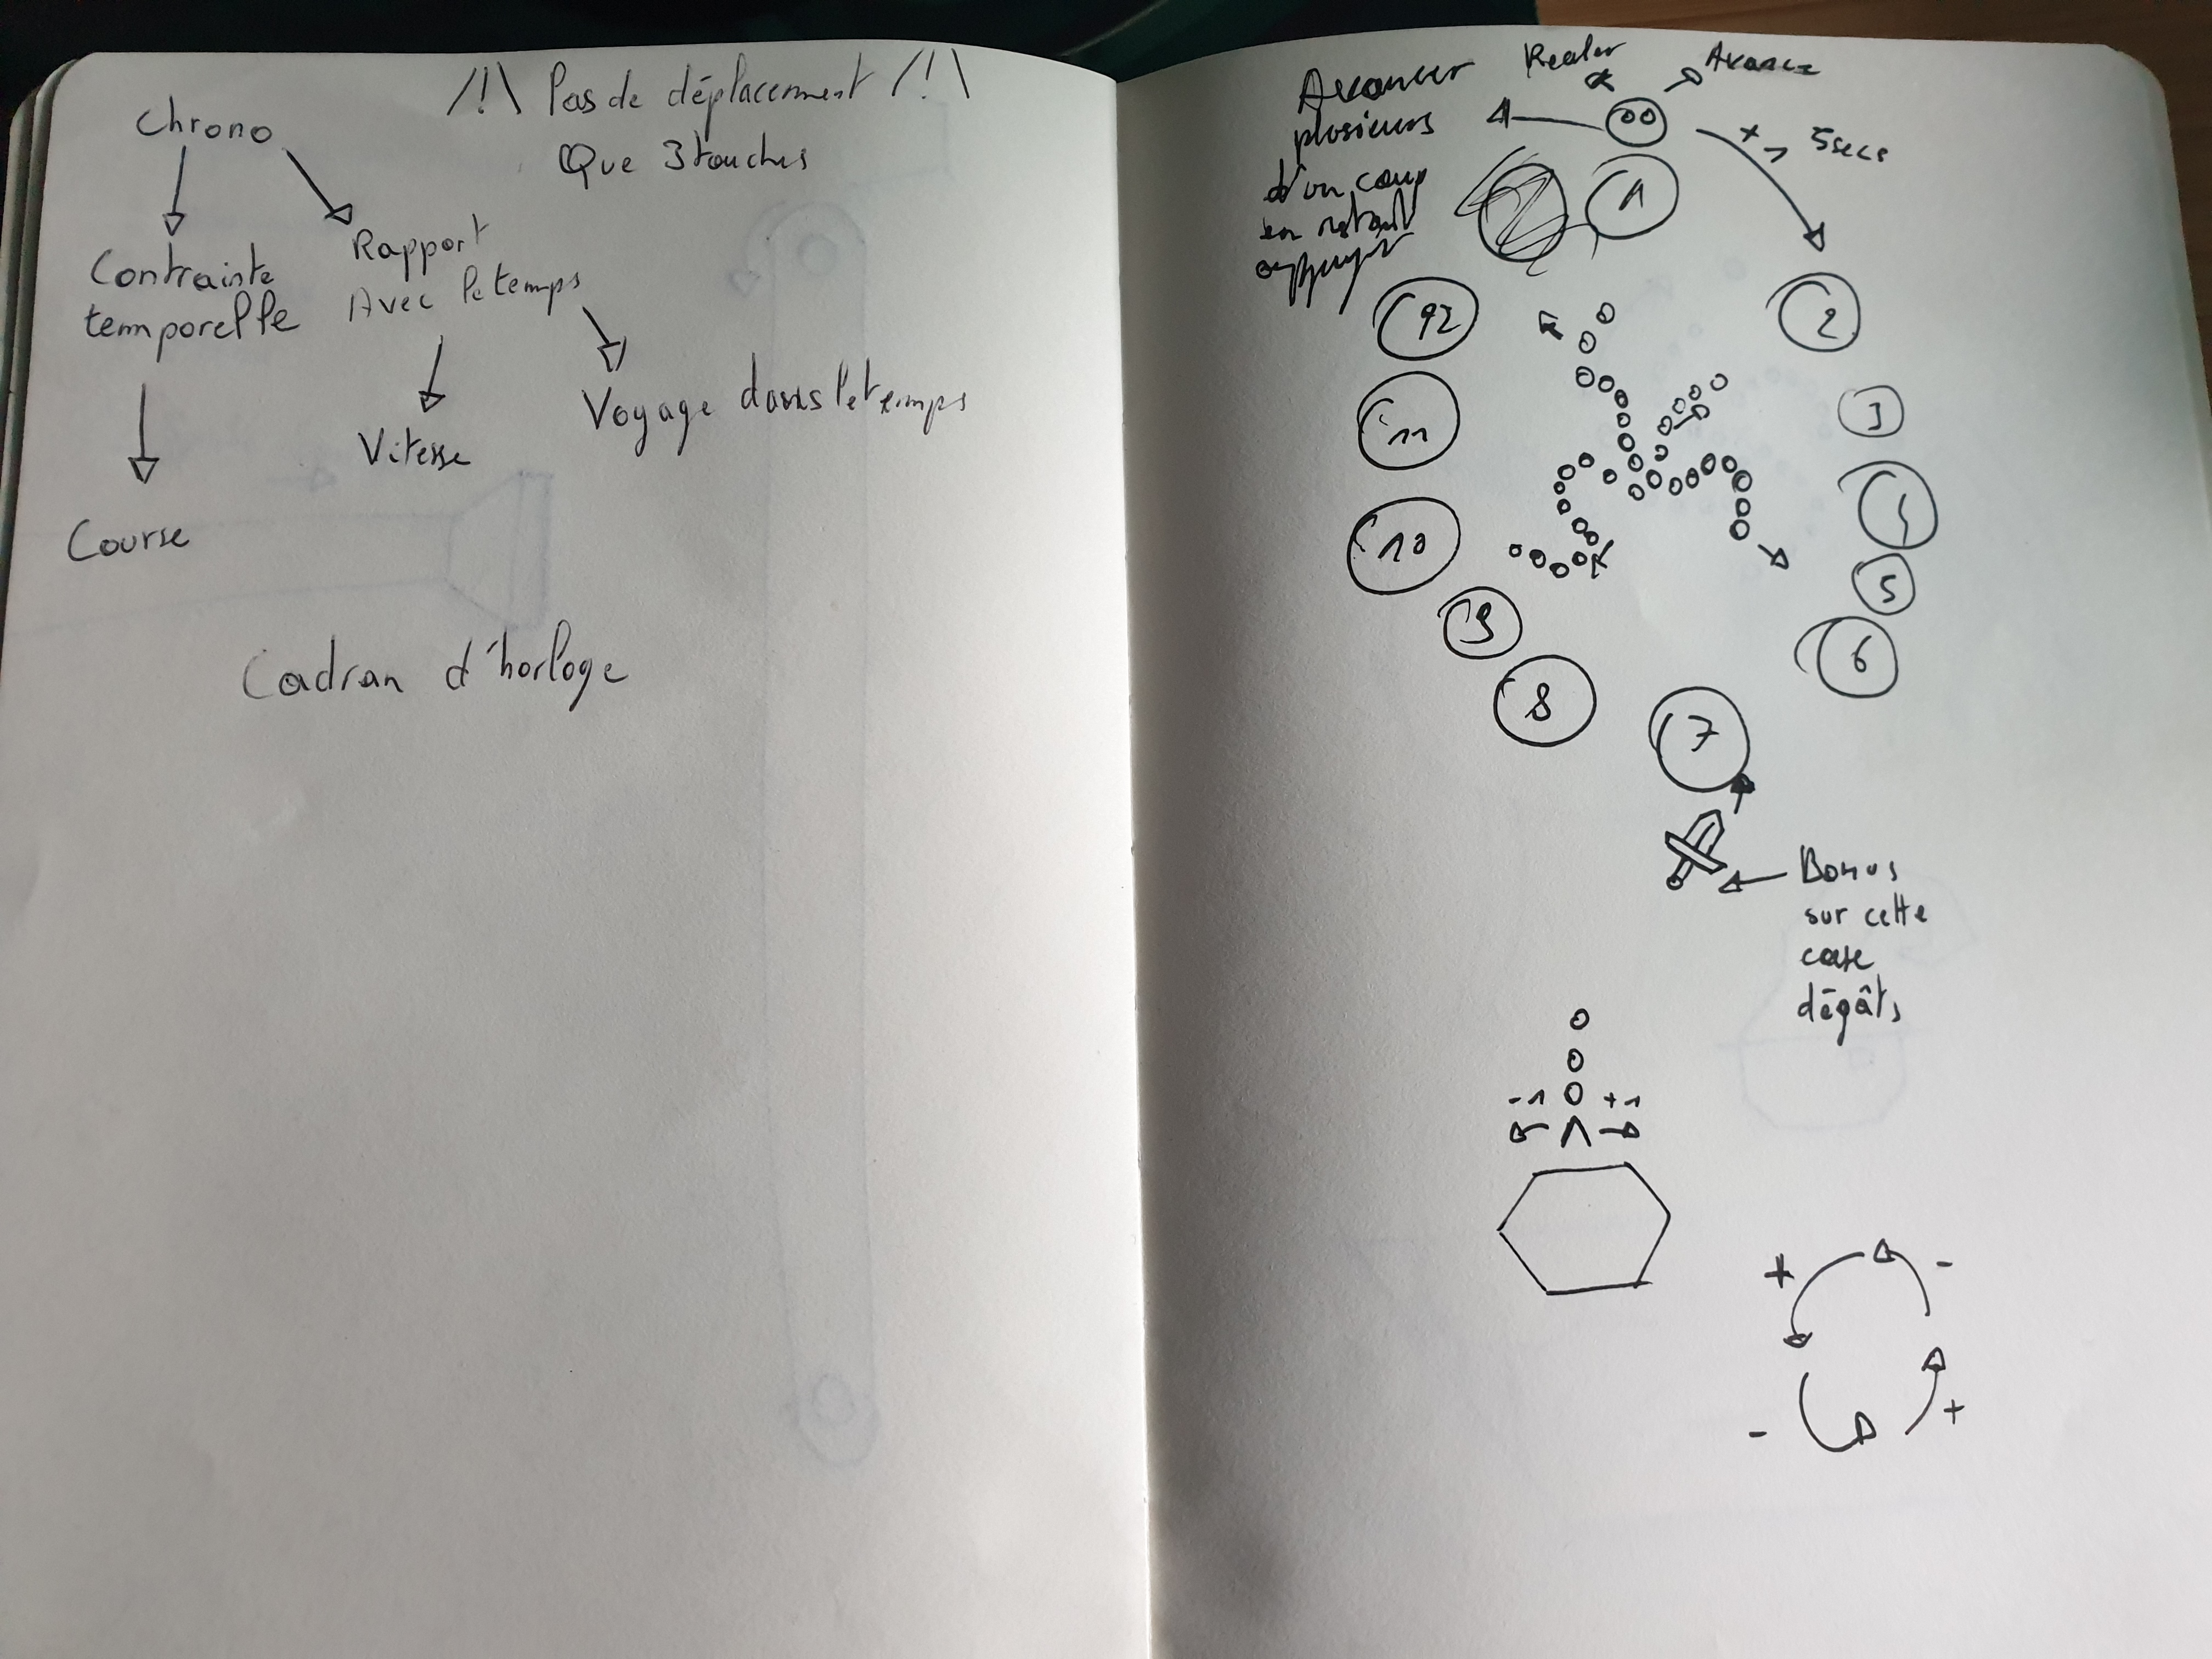 /!\ Pas de déplacement /!\
Que 3 touches
Chrono
Contrainte
temporelle
Rapport
Avec le temps
Vitesse
Voyage dans le temps
Course
Cadran d'horloge
Avancer
plusieurs
d'un coup
en restant
appuyé
Reculer
Avance
+1 5secs
1
2
3
5
6
7
8
9
10
11
12
Bonus
sur cette
case
dégâts
-1 +1
+ -
- +